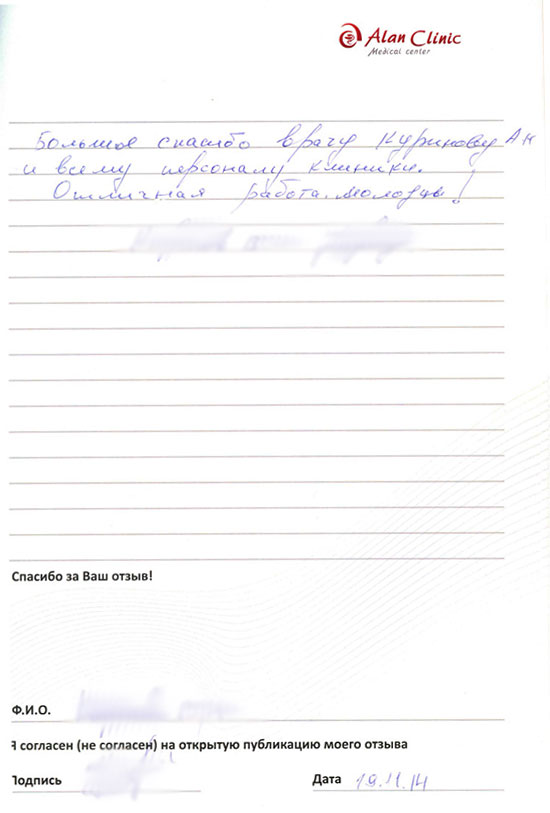 Alan Clinic
Medical center
Большое спасибо врачу Куринову АН
и всему персоналу клиники.
Отличная работа. Молодцы!
Спасибо за Ваш отзыв!
Ф.И.О.
Я согласен (не согласен) на открытую публикацию моего отзыва
Подпись Дата 19.11.14